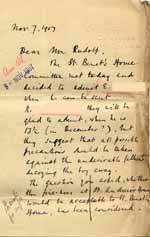 Nov. 7. 1907
Dear Mr Rudolf,
The St. Benet's Home
Committee met today and
decided to admit E
when he can be sent
they will be
glad to admit, when he is
13½ (in December?), but
they suggest that all possible
precautions should be taken
against the undesirable father
decoying the boy away.
The question you asked, whether
the freshness of St. Andrew's
would be acceptable to St. Benet's
Home, has been considered